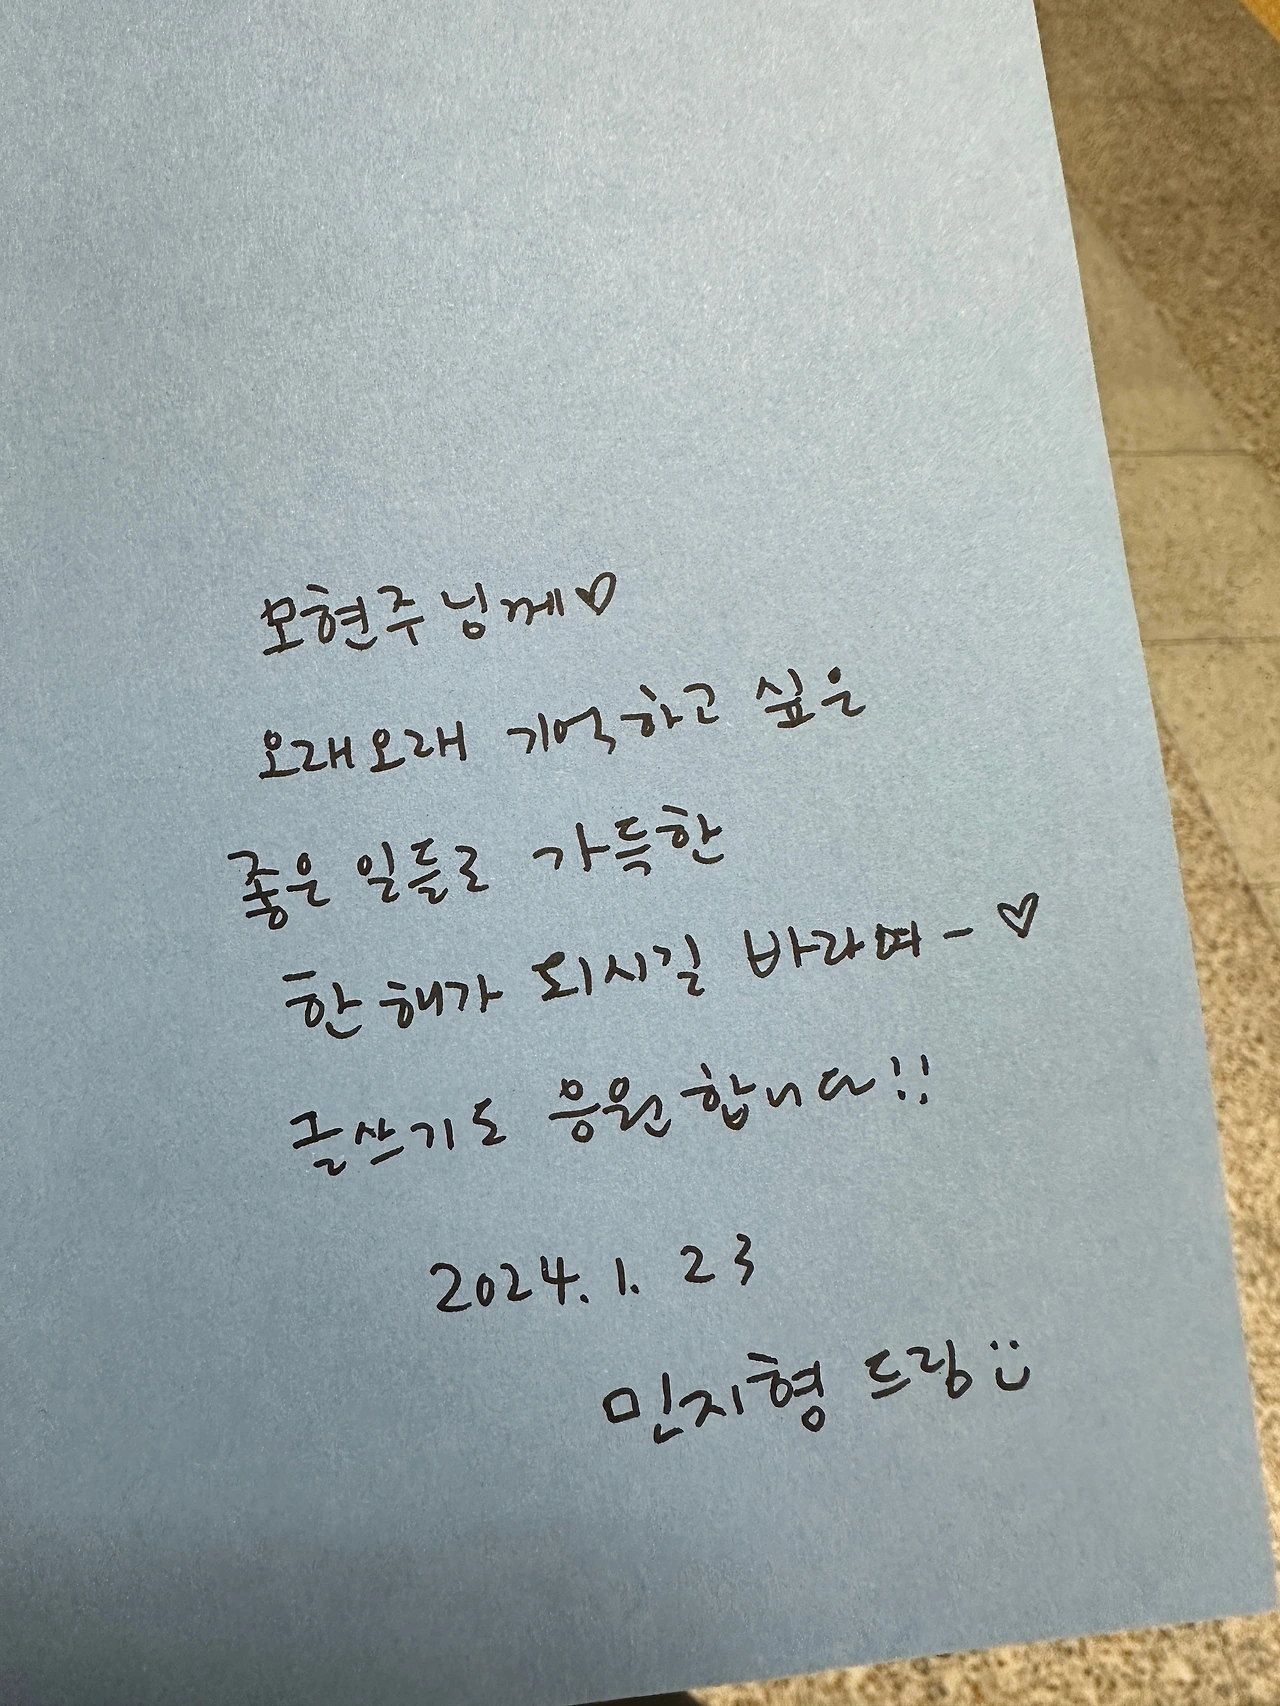 모현주님께♡
오래오래 기억하고 싶은
좋은 일들로 가득한
한 해가 되시길 바라며-♡
글쓰기도 응원합니다!!
2024. 1. 23
민지형 드림